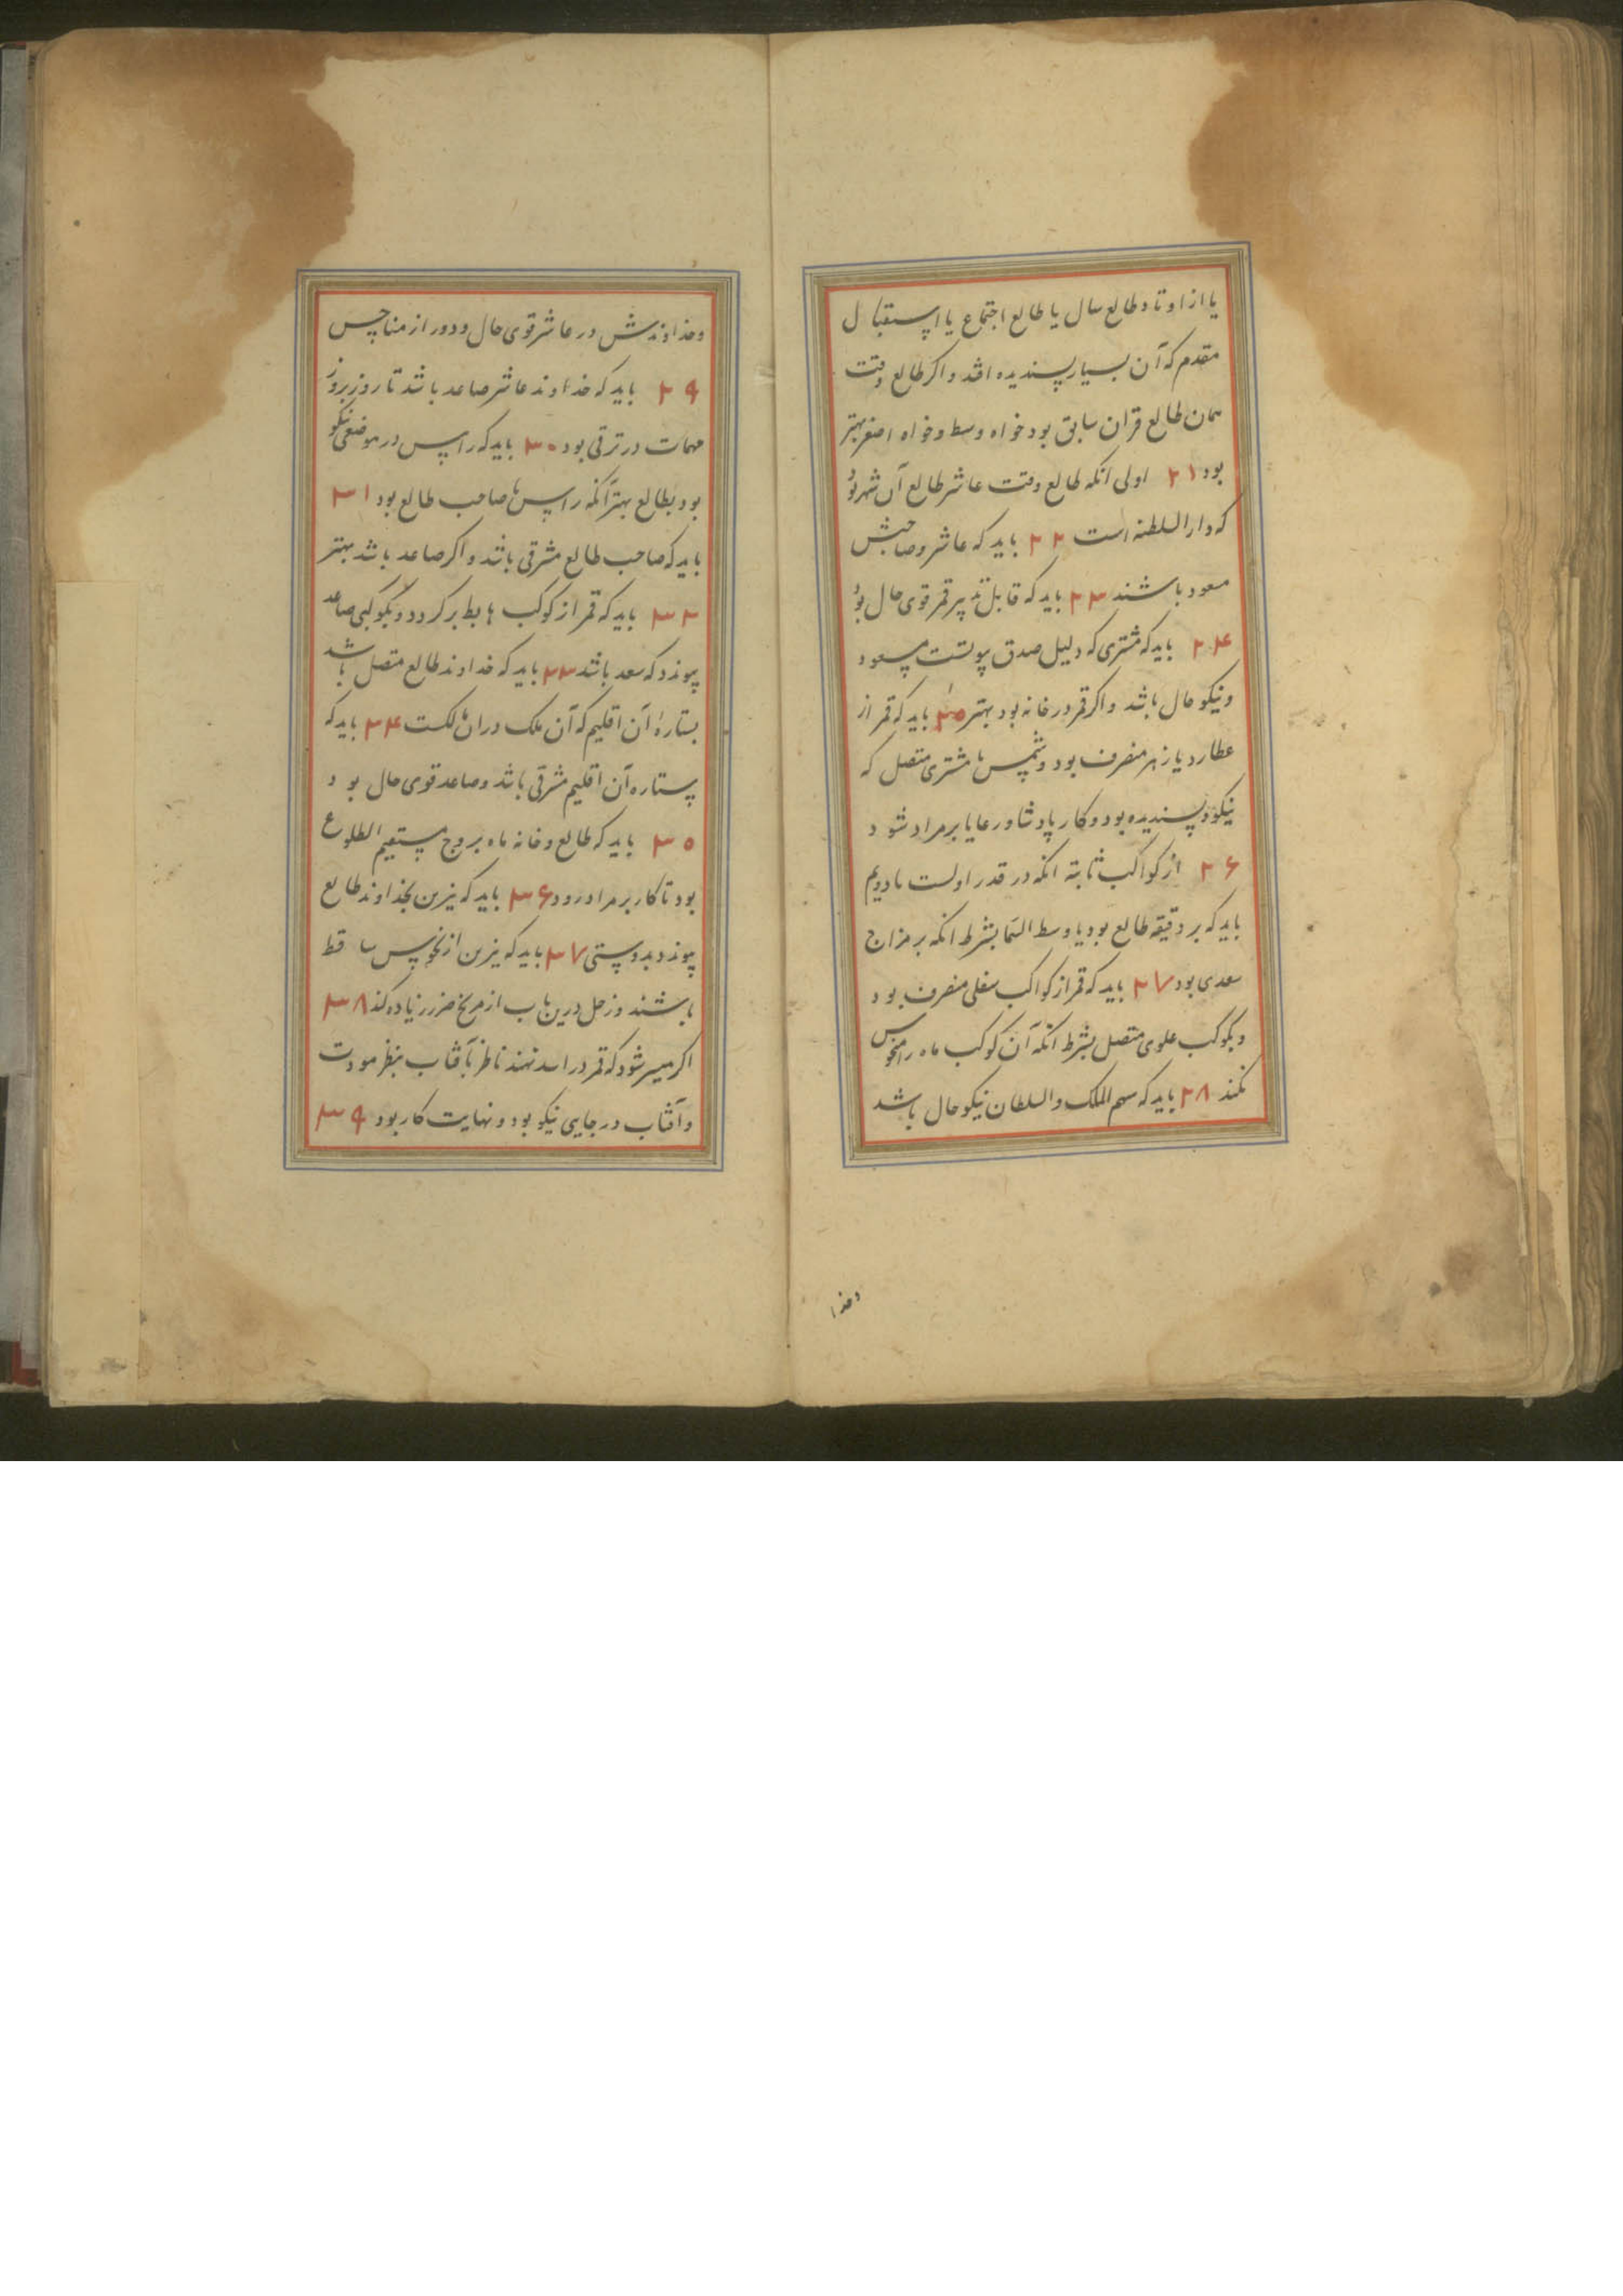 یا از اوتاد طالع سال یا طالع اجتماع یا استقبال
مقدم که آن بسیار پسندیده افتد و اکر طالع وقت
همان طالع قران سابق بود خواه وسط و خواه اصغر بهتر
بود ۲۱ اولی انکه طالع وقت عاشر طالع آن شهر بود
که دار السلطنه است ۲۲ باید که عاشر و صاحبش
مسعود باشند ۲۳ باید که قابل تدبیر قمر قوی حال بود
۲۴ باید که مشتری که دلیل صدق پیوست مسعود
و نیکو حال باشد و اکر قمر در خانه بود بهتر ۲۵ باید که قمر از
عطارد یا زهره منصرف بود و شمس با مشتری متصل که
نیکو و پسندیده بود و کار پادشا و رعایا بر مراد شود
۲۶ از کواکب ثابته انکه در قدر اولست یا دویم
باید که بر دقیقه طالع بود یا وسط السما بشرط انکه بر مزاج
سعدی بود ۲۷ باید که قمر از کواکب سفلی منصرف بود
و بکوکب علوی متصل بشرط انکه آن کوکب ماه را منحوس
نکند ۲۸ باید که سهم الملک و السلطان نیکو حال باشد
وخدا
وخداوندش در عاشر قوی حال و دور از مناحس
۲۹ باید که خداوند عاشر صاعد باشد تا روز بروز
مهمات در ترقی بود ۳۰ باید که راس در موضعی نیکو
بود بطالع بهتر آنکه راس با صاحب طالع بود ۳۱
باید که صاحب طالع مشرقی باشد و اکر صاعد باشد بهتر
۳۲ باید که قمر از کوکب هابط برکردد و بکوکبی صاعد
پیوندد که سعد باشد ۳۳ باید که خداوند طالع متصل باشد
بستارهٔ آن اقلیم که آن ملک دران مالکست ۳۴ باید که
ستاره آن اقلیم مشرقی باشد و صاعد قوی حال بود
۳۵ باید که طالع و خانه ماه بروج مستقیم الطلوع
بود تا کار بر مراد رود ۳۶ باید که نیرین بخداوند طالع
پیوندد بدوستی ۳۷ باید که نیرین از نحوس ساقط
باشند و زحل درین باب از مریخ ضرر زیاده کند ۳۸
اکر میسر شود که قمر در اسد نهند ناظر بآفتاب بنظر مودت
و آفتاب در جایی نیکو بود و نهایت کار بود ۳۹